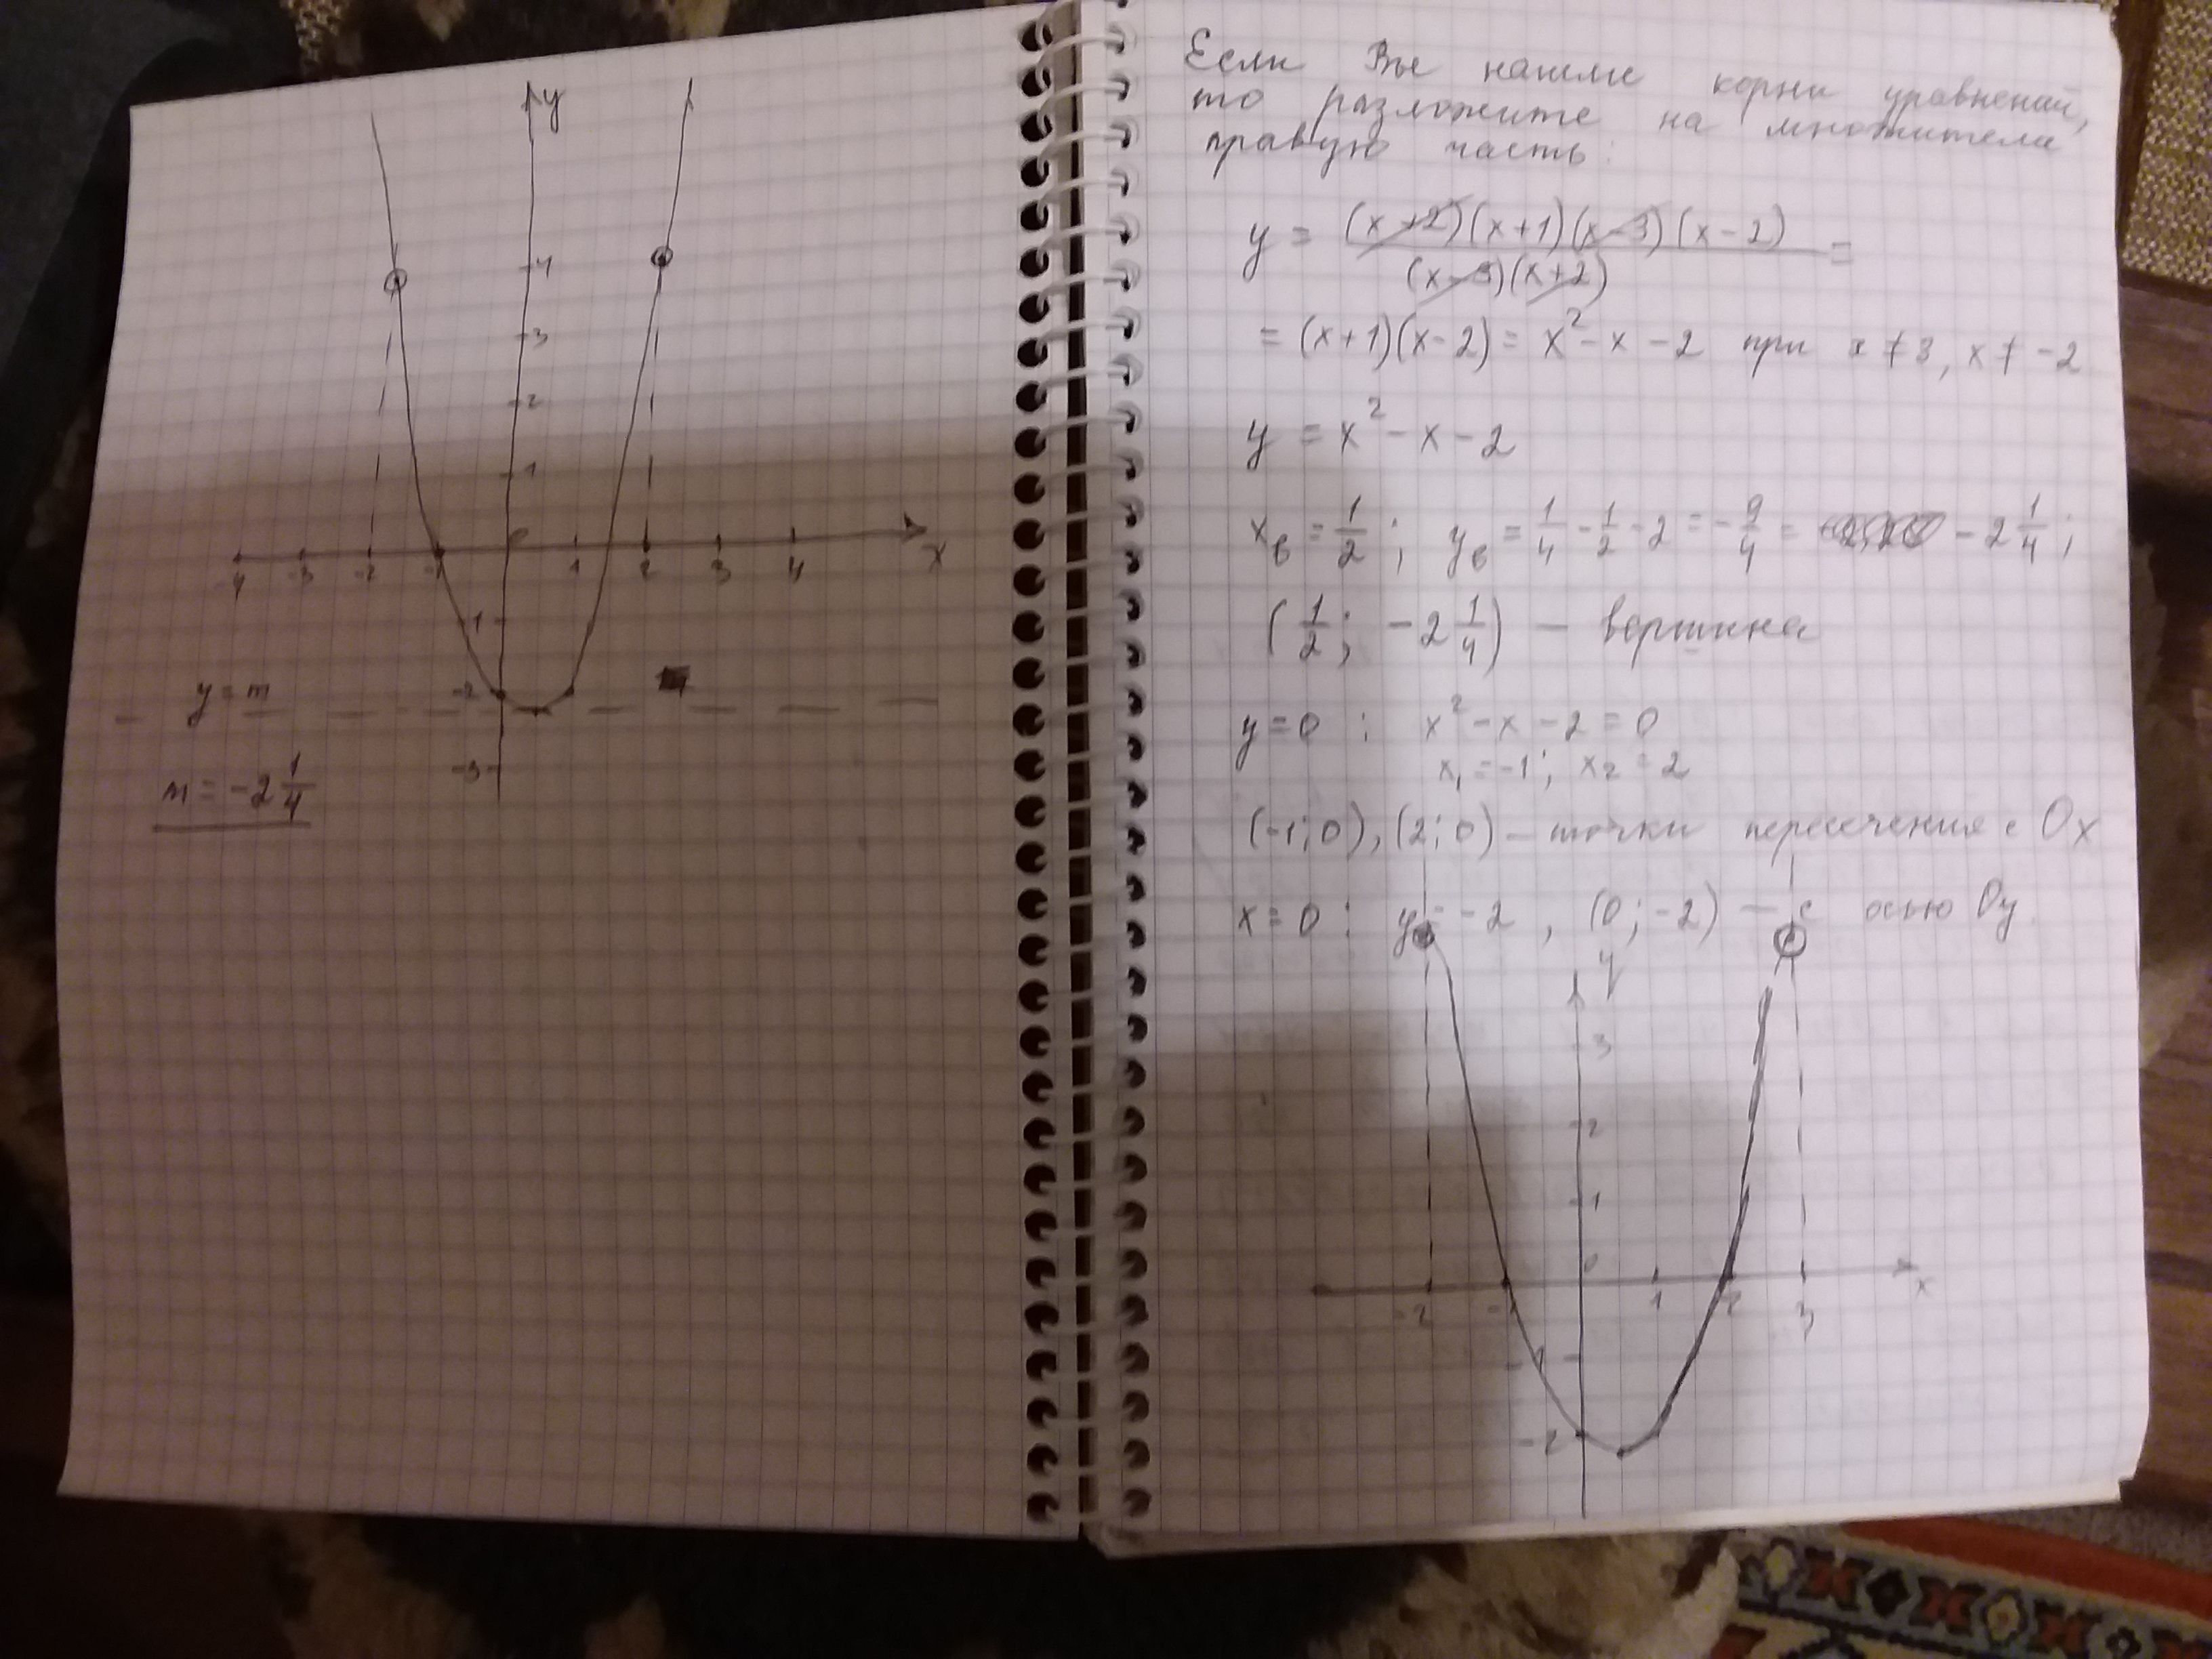 y
4
3
2
1
0
-4 -3 -2 -1 1 2 3 4 x
-1
-2
y = m
-3
m = -2 1/4
Если Вы нашли корни уравнений,
то разложите на множители
правую часть:
y = (x+2)(x+1)(x-3)(x-2) / (x-3)(x+2) =
= (x+1)(x-2) = x² - x - 2 при x ≠ 3, x ≠ -2
y = x² - x - 2
xв = 1/2; yв = 1/4 - 1/2 - 2 = -9/4 = -2 1/4;
(1/2; -2 1/4) — вершина
y = 0 : x² - x - 2 = 0
x₁ = -1; x₂ = 2
(-1; 0), (2; 0) — точки пересечения с Ox
x = 0 : y = -2, (0; -2) — с осью Oy.
y
3
2
1
0
-2 -1 1 2 3 x
-1
-2